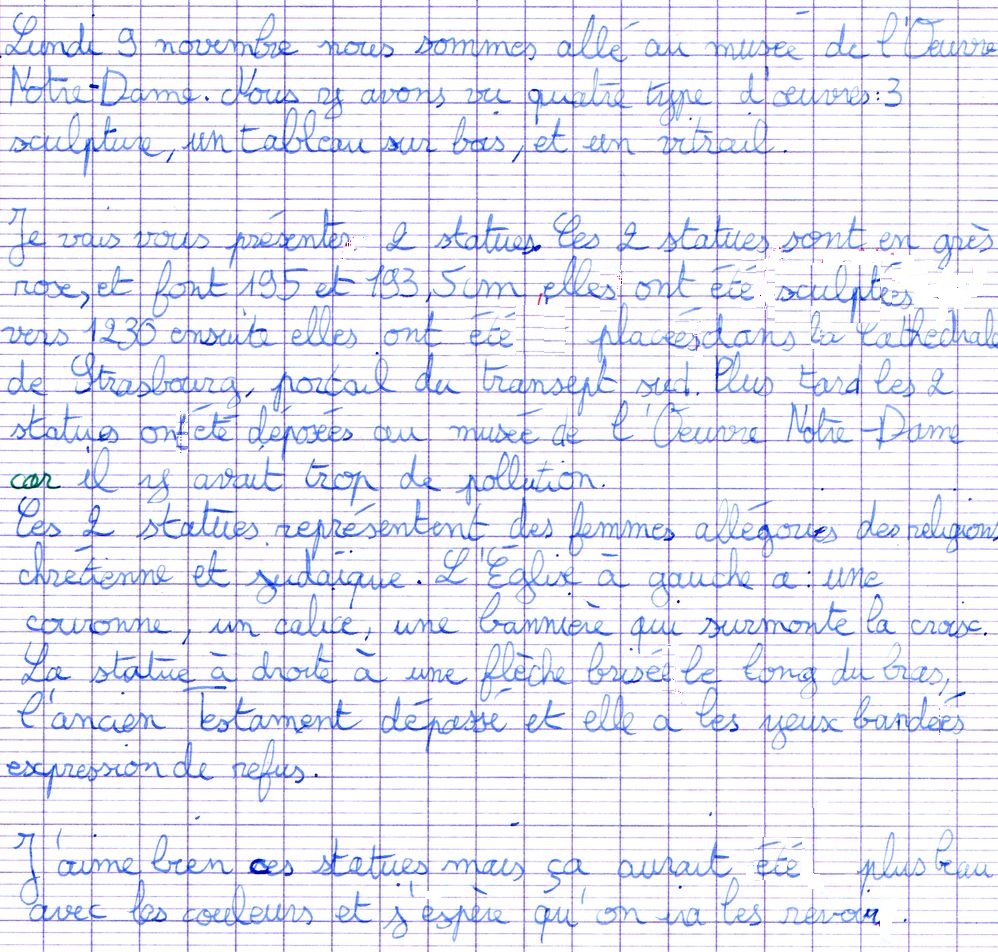 Lundi 9 novembre nous sommes allé au musée de l'Oeuvre
Notre-Dame. Nous y avons vu quatre type d'oeuvres: 3
sculpture, un tableau sur bois, et un vitrail.
Je vais vous présenter 2 statues. Les 2 statues sont en grès
rose, et font 195 et 193,5cm, elles ont été sculptées
vers 1230 ensuite elles ont été placées dans la Cathédrale
de Strasbourg, portail du transept sud. Plus tard les 2
statues ont été déposées au musée de l'Oeuvre Notre-Dame
car il y avait trop de pollution.
Les 2 statues représentent des femmes allégories des religions
chrétienne et judaïque. L'Église à gauche a : une
couronne, un calice, une bannière qui surmonte la croix.
La statue à droite à une flèche brisée le long du bras,
l'ancien Testament dépassé et elle a les yeux bandées
expression de refus.
J'aime bien ces statues mais ça aurait été plus beau
avec les couleurs et j'espère qu'on va les revoir.